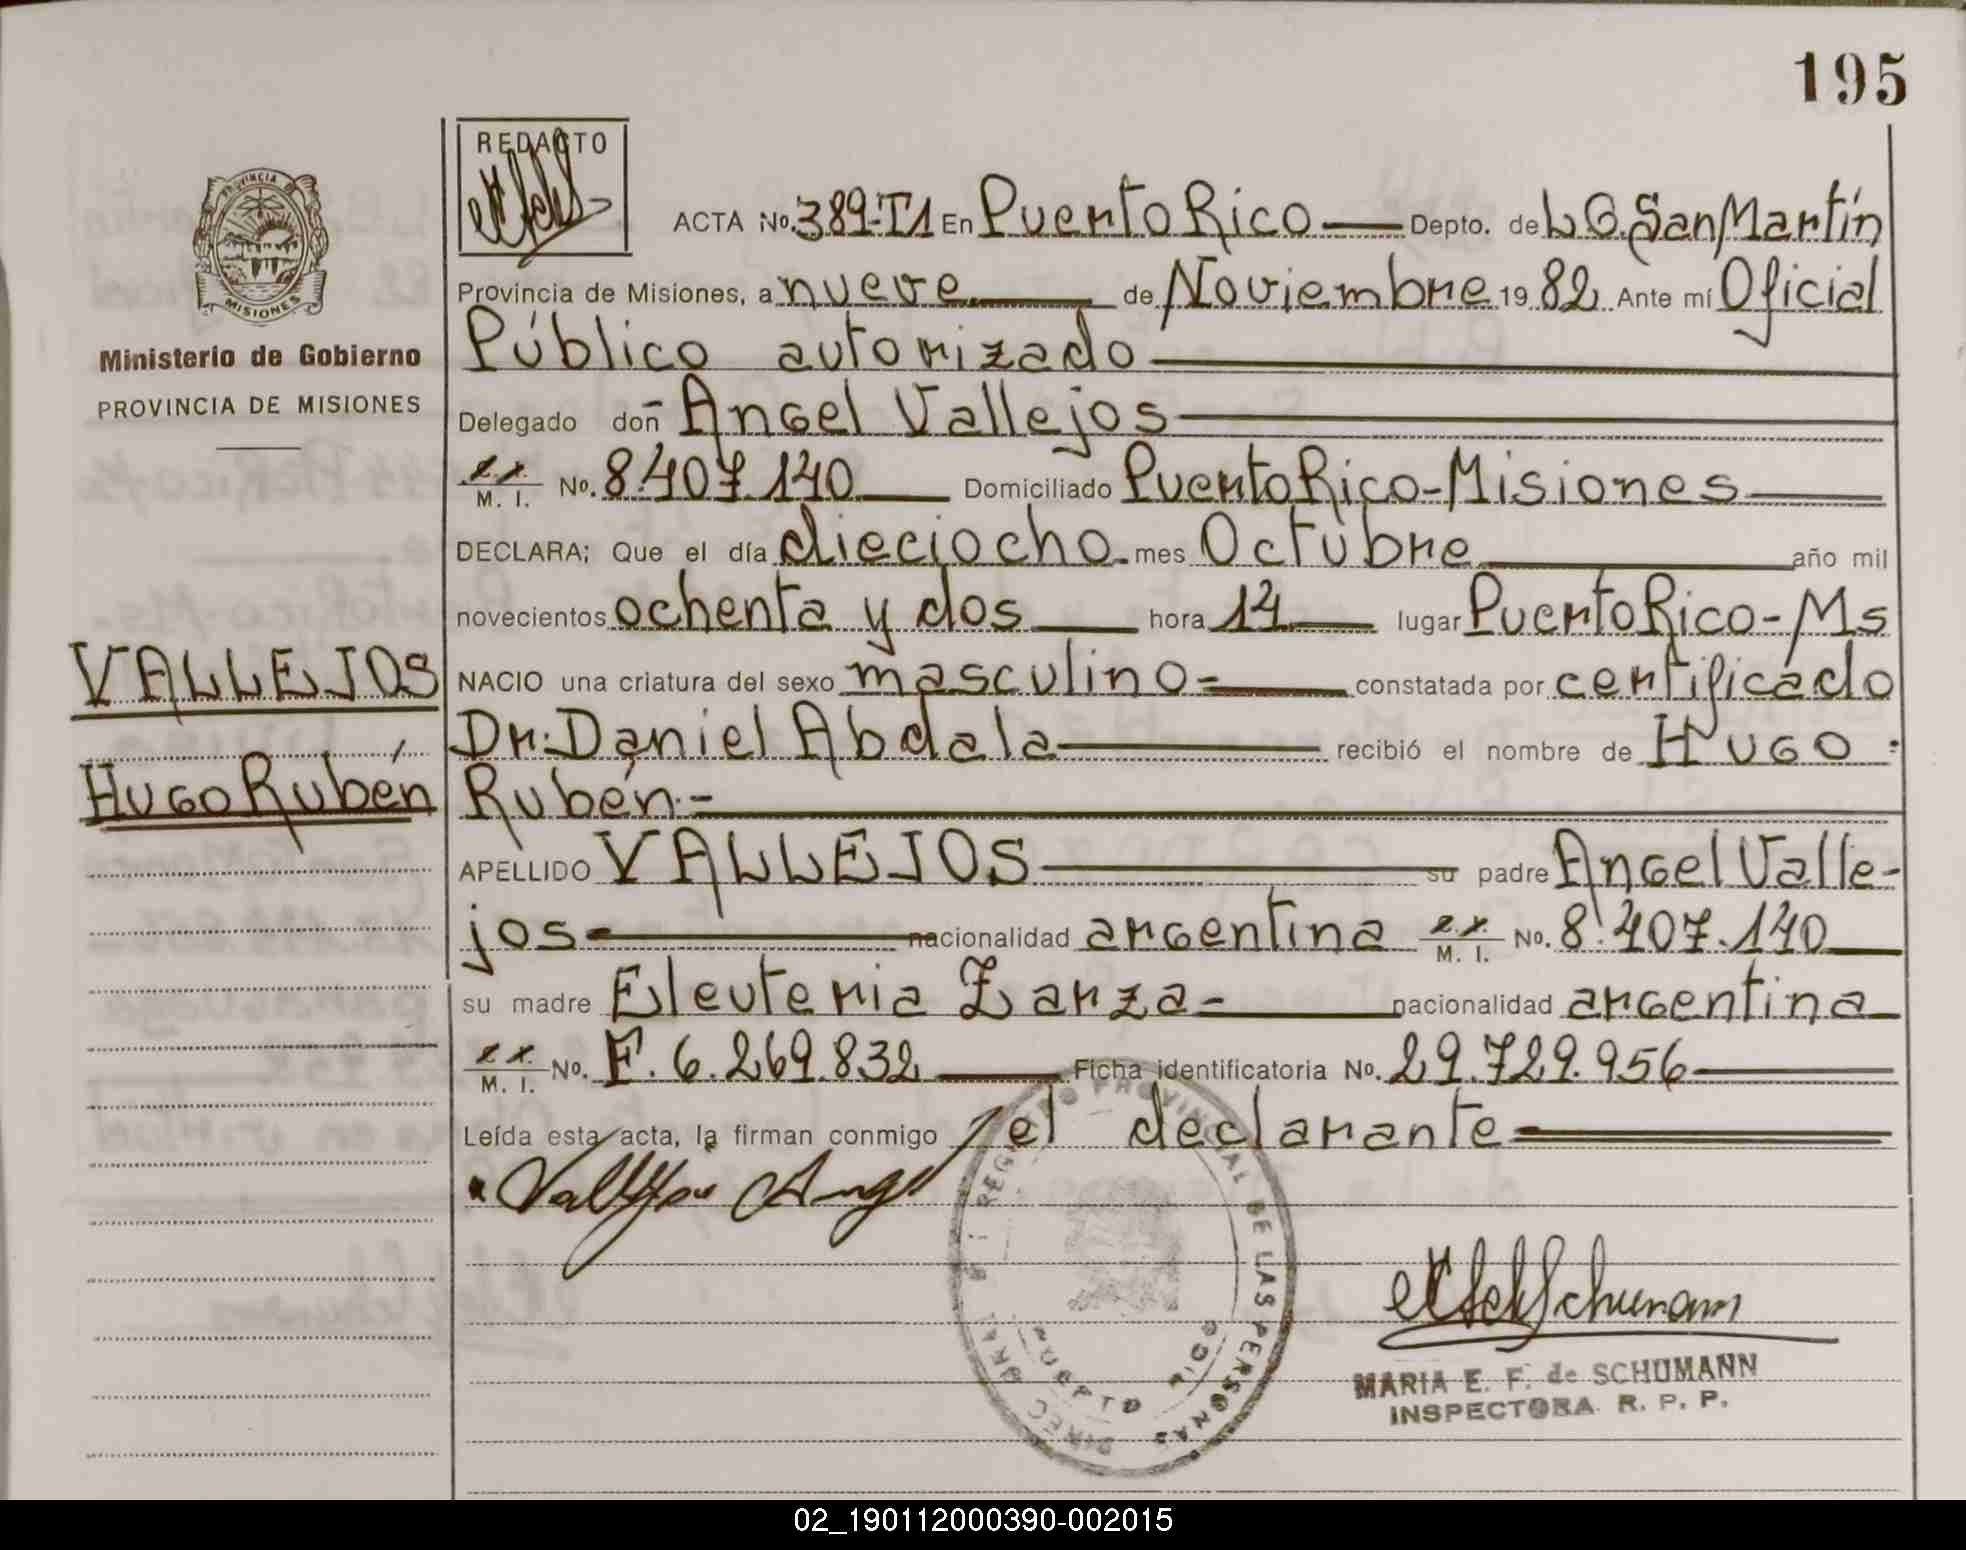 195
REDACTO
PROVINCIA DE
MISIONES
Ministerio de Gobierno
PROVINCIA DE MISIONES
VALLEJOS
Hugo Rubén
ACTA No. 389-T1 En Puerto Rico Depto. de L.G. San Martín
Provincia de Misiones, a nueve de Noviembre 19 82 Ante mí Oficial
Público autorizado
Delegado don Angel Vallejos
M. I. No. 8.407.140 Domiciliado Puerto Rico-Misiones
DECLARA; Que el día dieciocho mes Octubre año mil
novecientos ochenta y dos hora 14 lugar Puerto Rico-Ms
NACIO una criatura del sexo masculino- constatada por certificado
Dr. Daniel Abdala recibió el nombre de Hugo
Rubén.-
APELLIDO VALLEJOS su padre Angel Valle-
jos nacionalidad argentina M. I. No. 8.407.140
su madre Eleuteria Zarza- nacionalidad argentina
M. I. No. F. 6.269.832 Ficha identificatoria No. 29.729.956
Leída esta acta, la firman conmigo el declarante
Vallejos Angel
REGISTRO PROVINCIAL DE LAS PERSONAS
PUERTO RICO
Schumann
MARIA E. F. de SCHUMANN
INSPECTORA R. P. P.
02_190112000390-002015